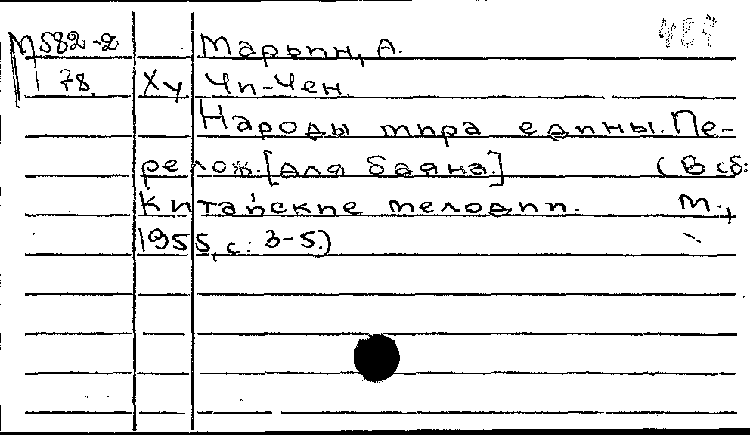 М582-2 Марьин, А.
78. Ху Чи-Чен.
Народы мира едины. Пе-
релож. [для баяна.] (В сб:
Китайские мелодии. М.,
1955, с. 3-5.)